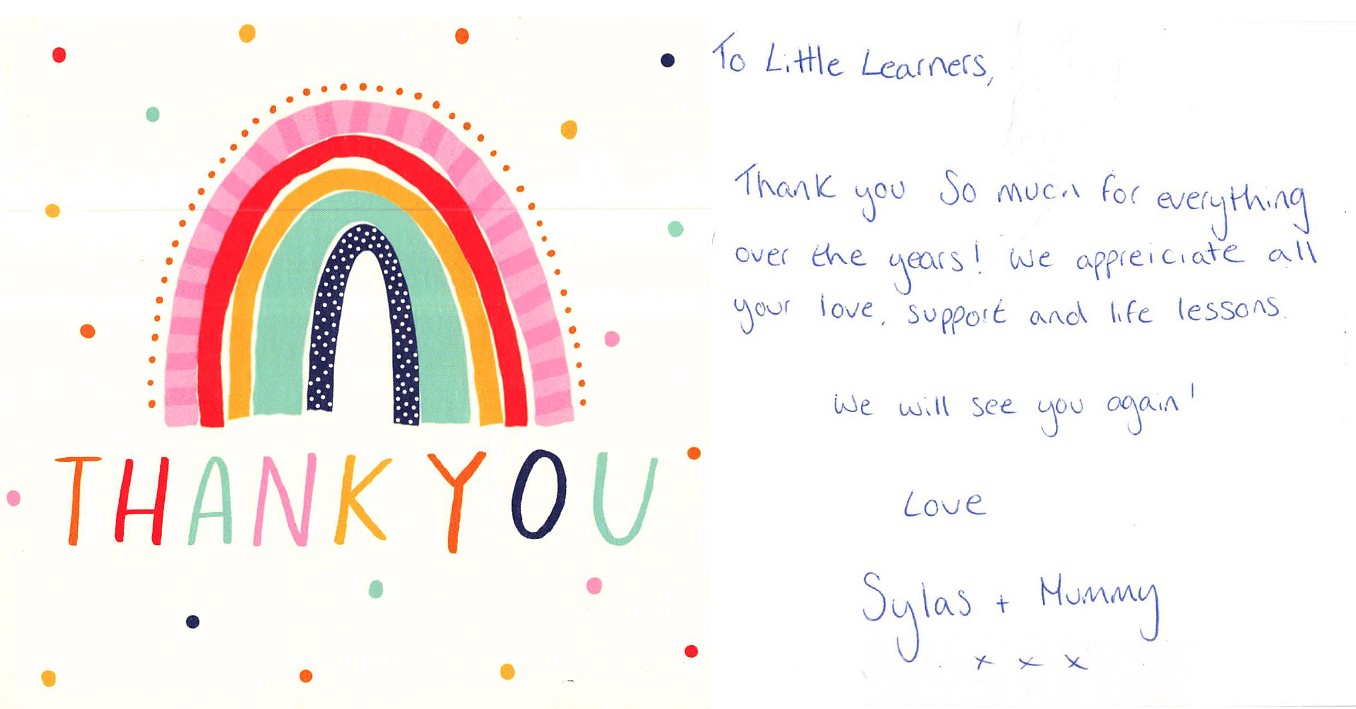 THANK YOU
To Little Learners,
Thank you So much for everything
over the years! We appreiciate all
your love, support and life lessons.
We will see you again!
Love
Sylas + Mummy
x x x